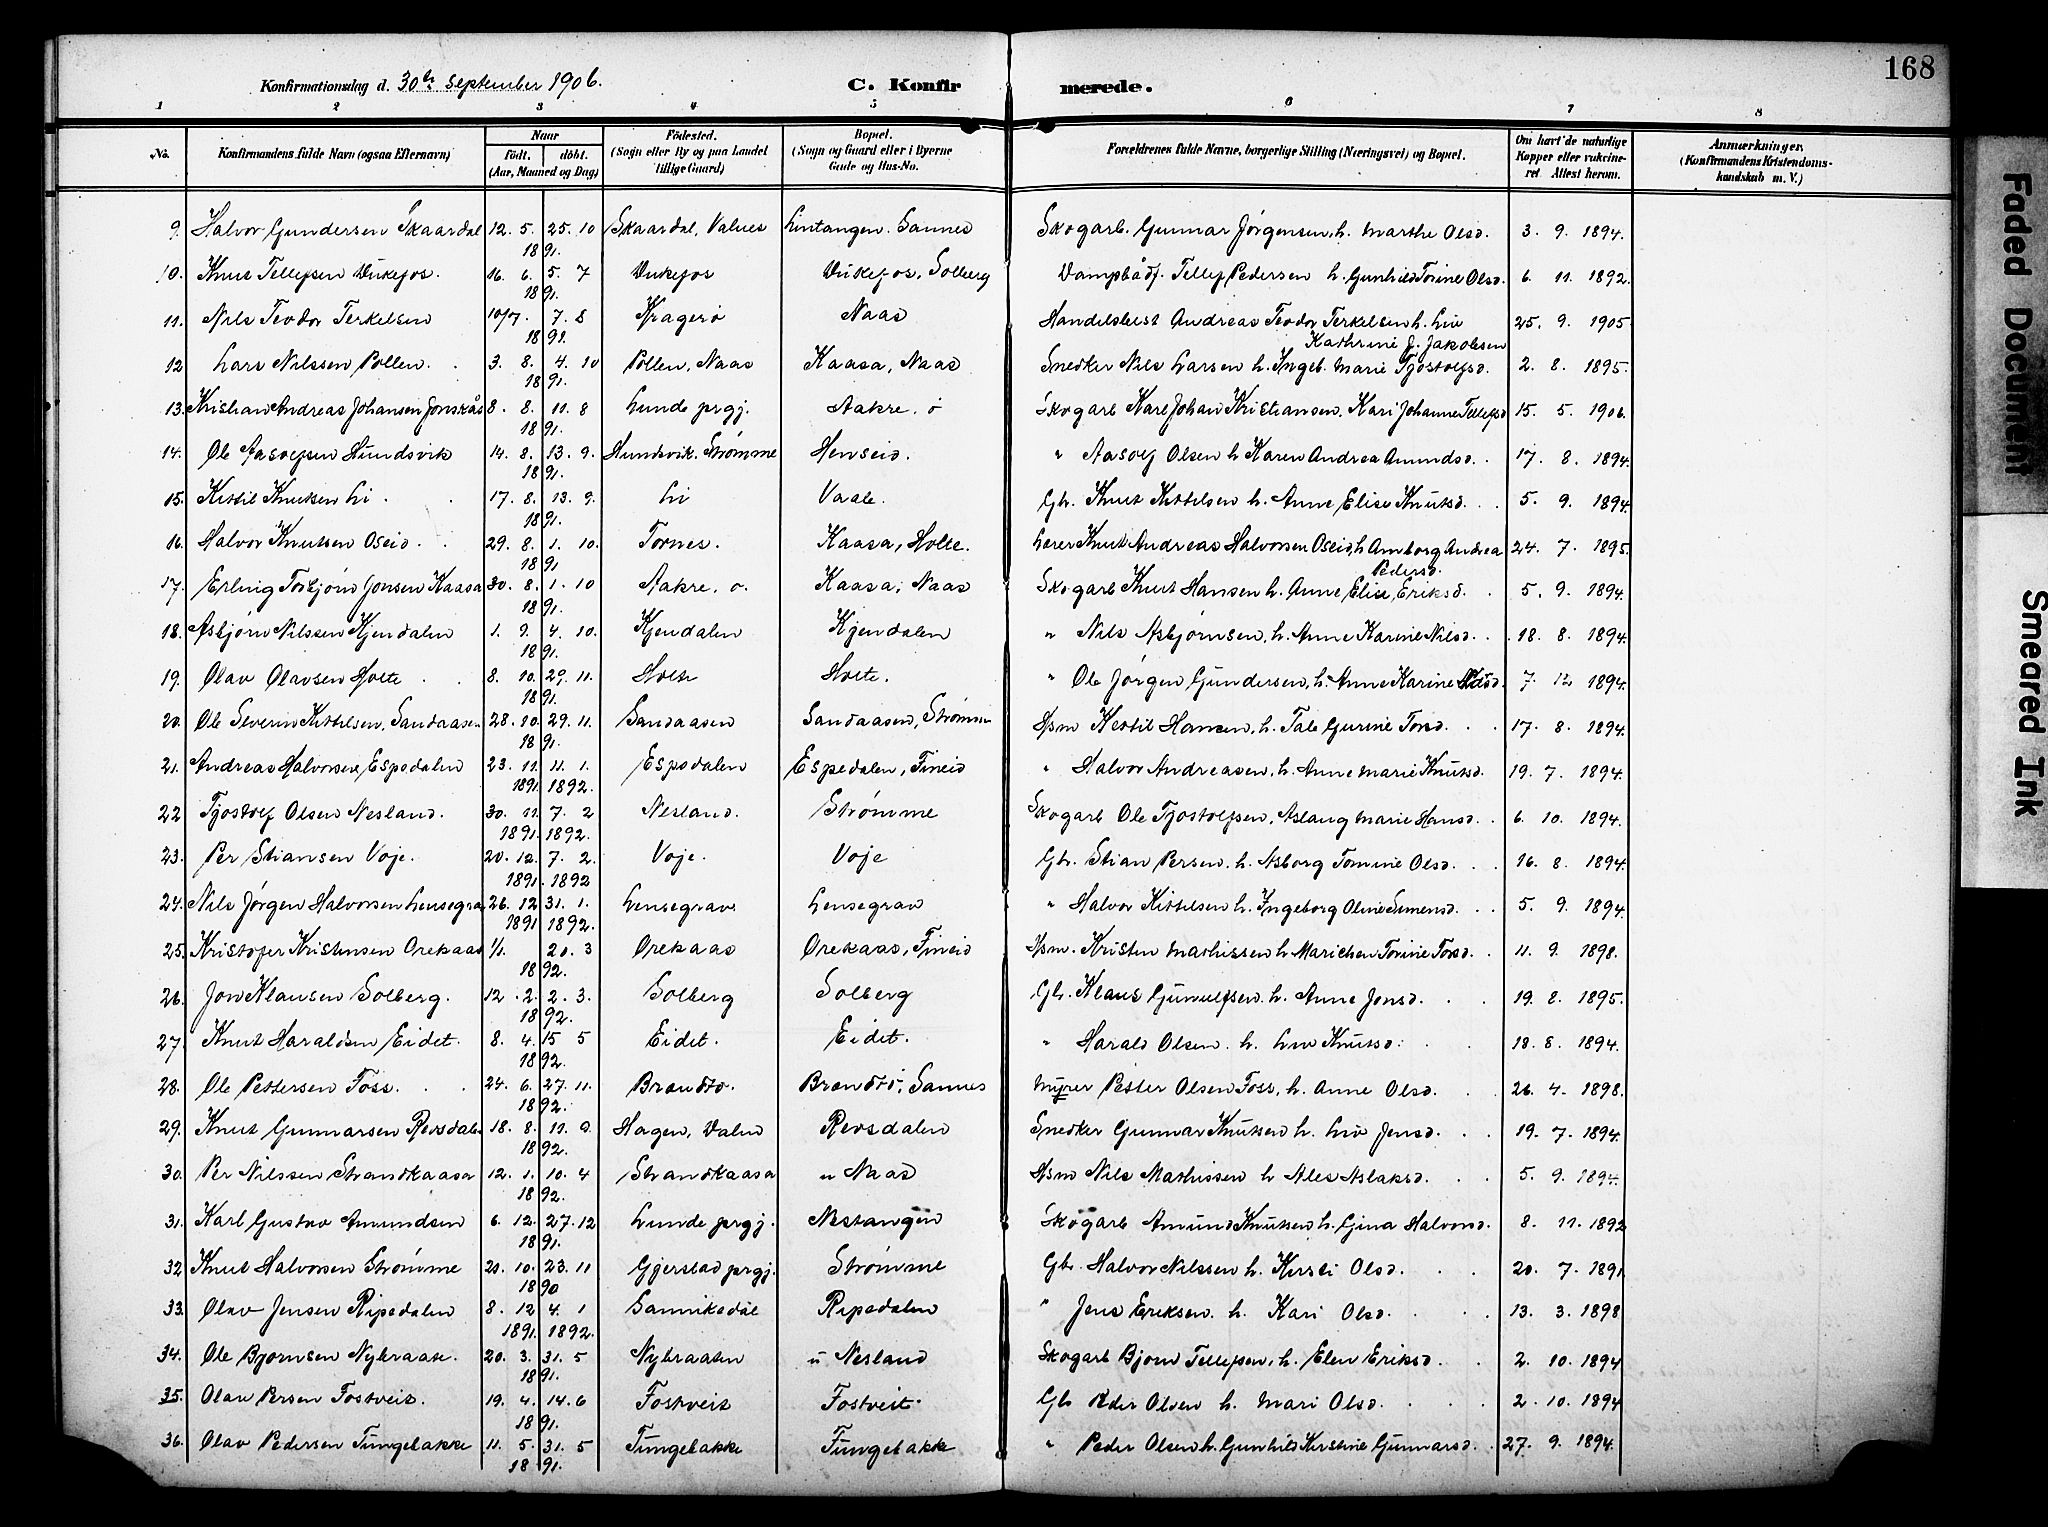 168
Konfirmationsdag d. 30te September 1906.
C. Konfirmerede.
1 2 3 4 5 6 7 8
No.
Konfirmandens fulde Navn (ogsaa Efternavn)
Naar
født. døbt.
(Aar, Maaned og Dag)
Fødested.
(Sogn eller By og paa Landet
tillige Gaard)
Bopæl.
(Sogn og Gaard eller i Byerne
Gade og Hus-No.
Forældrenes fulde Navne, borgerlige Stilling (Næringsvei) og Bopæl.
Om havt de naturlige
Kopper eller vakcine-
ret. Attest herom.
Anmærkninger.
(Konfirmandens Kristendoms-
kundskab m. V.)
9. Halvor Gundersen Skaardal 12. 5. 25. 10 1891. Skaardal, Valnes Sannes Skogarb. Gunnar Jørgensen, h. Marthe Olsd. 3. 9. 1894.
10. Knut Tellefsen Vukefos. 16. 6. 5. 7 1891. Vukefos Vukefos, Solberg Tellef Pedersen h. Gunhild Torine Olsd. 6. 11. 1892.
11. Nils Teodor Terkelsen 10/7. 7. 8 1891. Kragerø Naas Andreas Teodor Terkelsen h. Liv Kathrine J. Jakobsen 25. 9. 1905.
12 Lars Nilssen Pollen. 3. 8. 4. 10 1891. Pollen, Naas Kaasa, Naas Snedker Nils Larsen h. Ingeb. Marie Tjostolfsd. 2. 8. 1895.
13. Kristian Andreas Johansen Jonskås 8. 8. 11. 8 1891. Lunde prgj. Aakre. ø Skogarb Karl Johan Kristiansen. Kari Johanne Tellefsd 15. 5. 1906.
14. Ole Aasolfsen Hundsvik 14. 8. 13. 9. 1891. Hundsvik. Strømme Henseid. " Aasolf Olsen h Karen Andrea Amundsd. 17. 8. 1894.
15. Kittil Knutsen Li. 17. 8. 13. 9. 1891. Li Vaale. Gbr. Knut Kittilsen h. Anne Elise Knutsd. 5. 9. 1894.
16. Halvor Knutsen Oseid. 29. 8. 1. 10. 1891 Tornes. Kaasa, Holte. Lærer Knut Andreas Halvorsen Oseid, h Amborg Andrea Pedersd. 24. 7. 1895.
17. Erling Torbjørn Jonsen Kaasa 30. 8. 1. 10 1891. Aakre, ø. Kaasa, Naas Skogarb Knut Hansen h. Anne Elise Eriksd. 5. 9. 1894.
18. Asbjørn Nilssen Kjendalen 1. 9. 4. 10. 1891. Kjendalen Kjendalen " Nils Asbjørnsen, h. Anne Karine Nilsd. 18. 8. 1894.
19. Olav Olavsen Holte 8. 10. 29. 11. 1891. Holte Holte. " Ole Jørgen Gundersen, h. Anne Karine 7. 12 1894.
20. Ole Severin Kittilsen, Sandaasen 28. 10. 29. 11. 1891. Sandaasen Sandaasen, Strømm Hsm Kittil Hansen, h. Tale Gurine Torsd. 17. 8. 1894.
21. Andreas Halvorsen Espedalen 23. 11. 11. 1. 1891 1892. Espedalen Espedalen, Fineid " Halvor Andreasen, h. Anne Marie Knutsd. 19. 7. 1894.
22 Tjostolf Olsen Nesland. 30. 11. 7. 2 1891. 1892. Nesland. Strømme Skogarb Ole Tjostolfsen, Aslaug Marie Hansd. 6. 10. 1894.
23. Per Stiansen Voje. 20. 12. 7. 2. 1891. 1892 Voje. Voje Gbr. Stian Persen. h. Asborg Tomine Olsd. 16. 8. 1894.
24. Nils Jørgen Halvorsen Lensegrav 26. 12 31. 1. 1891 1892. Lensegrav Lensegrav " Halvor Kittilsen h. Ingeborg Oline Simensd. 5. 9. 1894.
25. Kristofer Kristensen Orekaas 1/1. 20. 3 1892. Orekaas Orekaas, Fineid Hsm. Kristen Mathissen h. Marichen Torine Torsd. 11. 9. 1898.
26. Jon Klausen Solberg. 12. 2. 2. 3. 1892. Solberg Solberg Gbr. Klaus Gunulfsen. h. Anne Jonsd. 19. 8. 1895.
27. Knut Haraldsen Eidet. 8. 4. 15 5 1892. Eidet. Eidet. " Harald Olsen. h. Liv Knutsd. 18. 8. 1894.
28. Ole Pettersen Foss. 24. 6. 27. 11. 1892. Brandtø. Brandtø, Sannes Murer Petter Olsen Foss, h. Anne Olsd. 26. 4. 1898.
29. Knut Gunnarsen Revsdalen 18. 8. 11. 9. 1892. Hagen, Valnes Revsdalen Snedker Gunnar Knutsen h. Liv Jensd. 19. 7. 1894.
30. Per Nilssen Strandkaasa 12. 1. 10. 4 1892. Strandkaasa u Naas Hsm Nils Mathissen h Ales Aslaksd. 5. 9. 1894.
31. Karl Gustav Amundsen 6. 12. 27. 12 1891. Lunde prgj. Nestangen Skogarb Amund Knutsen h. Gina Halvorsd. 8. 11. 1892
32 Knut Halvorsen Strømme 21. 10. 23. 11 1890 Gjerstad prgj. Strømme Gbr. Halvor Nilssen h. Kirsti Olsd. 20. 7. 1891
33. Olav Jensen Ripedalen 8. 12 4. 1 1891. 1892. Sannikedal Ripedalen " Jens Eriksen. h. Kari Olsd. 13. 3. 1898
34. Ole Bjørnsen Nybraate. 20. 3. 31. 5 1891. Nybraaten u Nesland Skogarb Bjørn Tellefsen, h. Elen Eriksd. 2. 10. 1894
35. Olav Persen Fostveit. 19. 4. 14. 6 1891. Fostveit Fostveit. Gbr Peder Olsen h. Mari Olsd. 2. 10. 1894
36. Olav Pedersen Tungebakke 11. 5. 31. 5 1891. Tungebakke Tungebakk " Peder Olsen h. Gunhild Kirstine Gunnarsd. 27. 9. 1894.
Faded Document
Smeared Ink